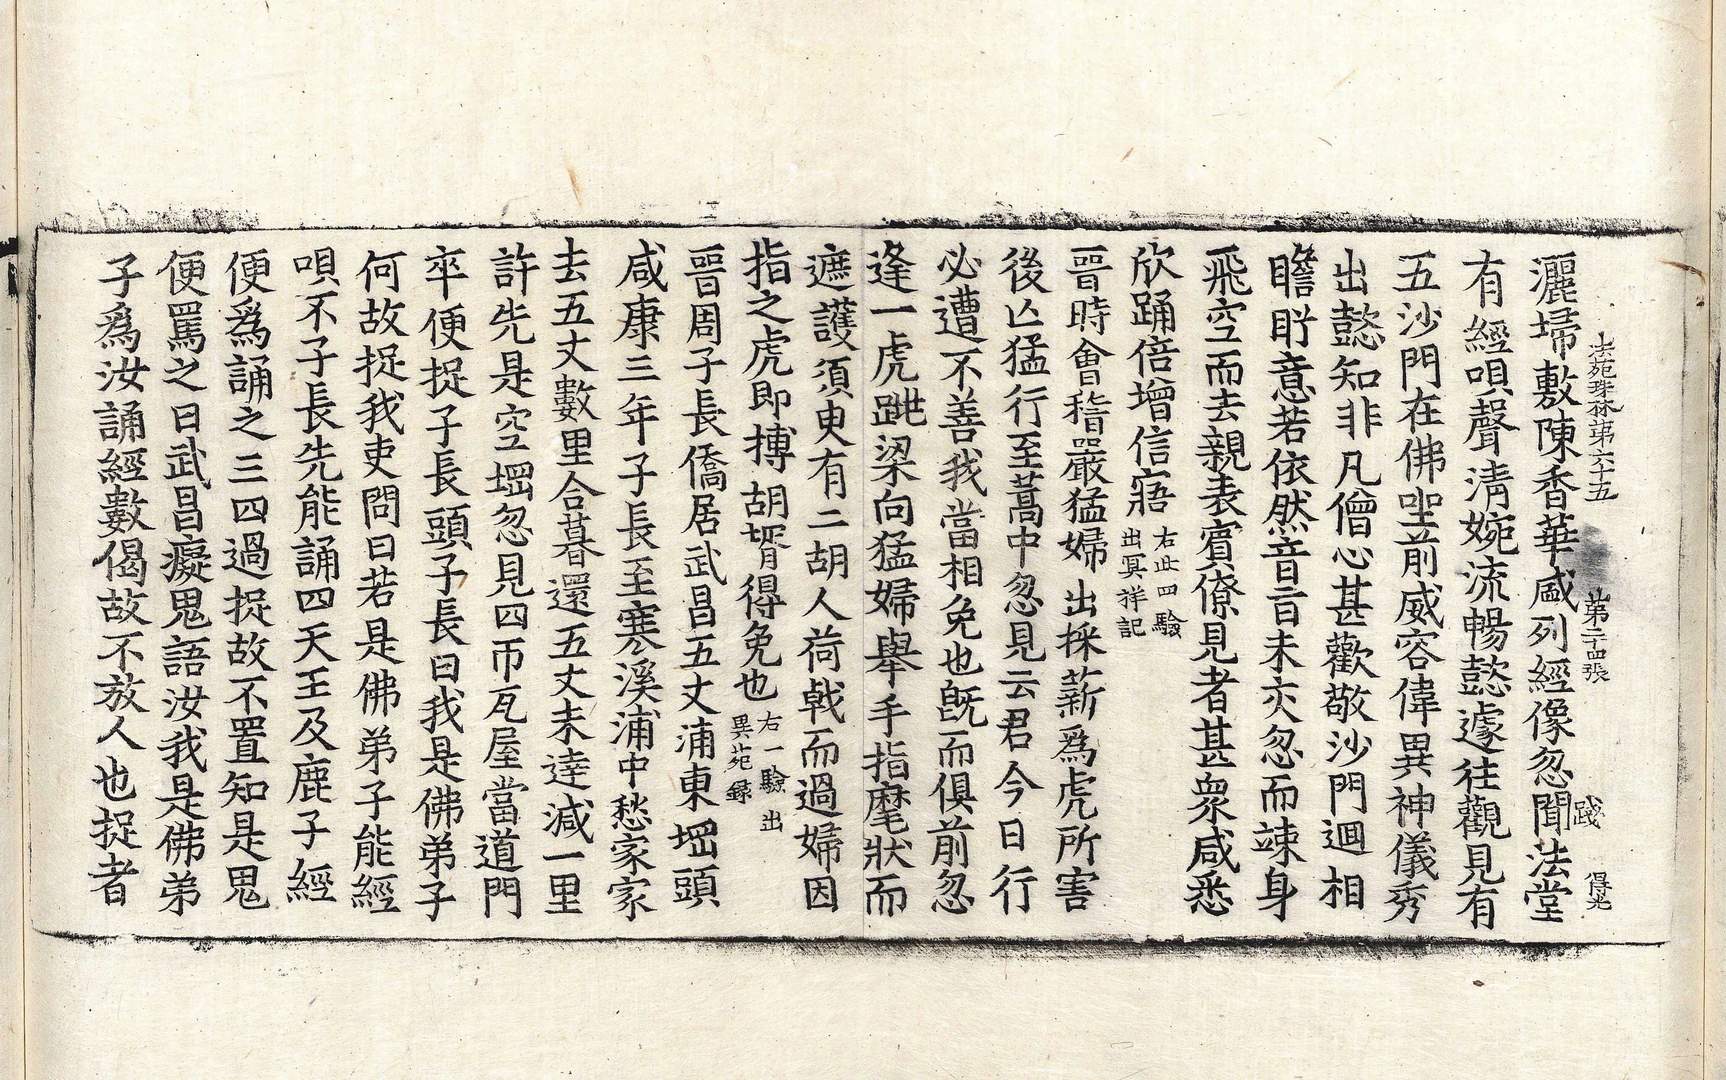 法苑珠林第六十五 第二十四張 踐 得光
灑埽敷陳香華盛列經像忽聞法堂
有經唄聲清婉流暢懿遽往觀見有
五沙門在佛㘴前威容偉異神儀秀
出懿知非凡僧心甚歡敬沙門迴相
瞻眄意若依然音旨未交忽而竦身
飛空而去親表賓僚見者甚衆咸悉
欣踊倍增信寤右此四驗出冥祥記
晉時會稽嚴猛婦出採薪爲虎所害
後亾猛行至蒿中忽見云君今日行
必遭不善我當相免也旣而俱前忽
逢一虎跳梁向猛婦舉手指麾狀而
遮護須臾有二胡人荷戟而過婦因
指之虎即搏胡壻得免也右一驗出異苑録
晉周子長僑居武昌五丈浦東堈頭
咸康三年子長至寒溪浦中愁家家
去五丈數里合暮還五丈未達減一里
許先是空堈忽見四帀瓦屋當道門
卒便捉子長頭子長曰我是佛弟子
何故捉我吏問曰若是佛弟子能經
唄不子長先能誦四天王及鹿子經
便爲誦之三四過捉故不置知是鬼
便罵之曰武昌癡鬼語汝我是佛弟
子爲汝誦經數偈故不放人也捉者